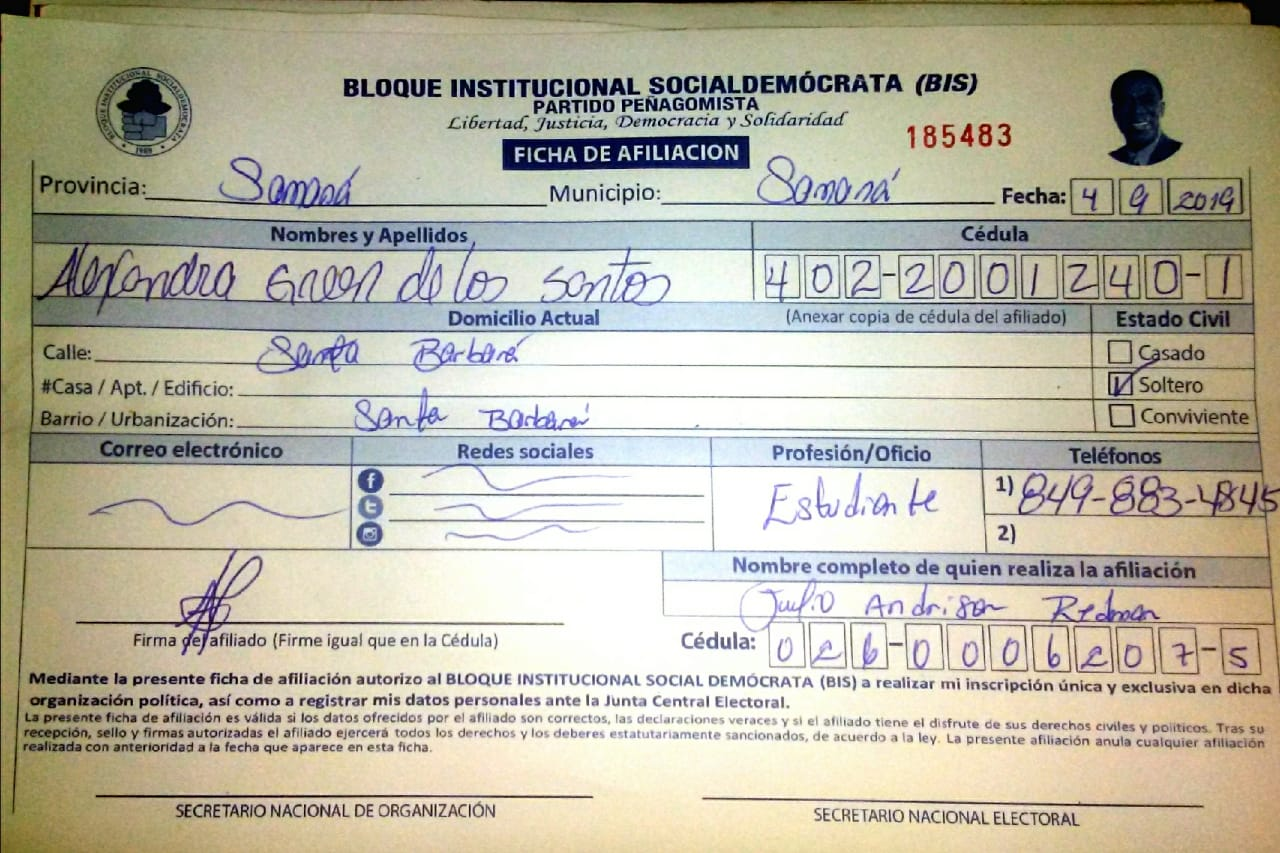 BLOQUE INSTITUCIONAL SOCIALDEMÓCRATA (BIS)
PARTIDO PEÑAGOMISTA
Libertad, Justicia, Democracia y Solidaridad
185483
FICHA DE AFILIACION
BLOQUE INSTITUCIONAL SOCIALDEMOCRATA
1989
Provincia: Samaná Municipio: Samaná Fecha: 4 9 2019
Nombres y Apellidos Cédula
Alexandra Green de los santos 402-2001240-1
Domicilio Actual (Anexar copia de cédula del afiliado) Estado Civil
Calle: Santa Barbará Casado
#Casa / Apt. / Edificio: Soltero
Barrio / Urbanización: Santa Barbará Conviviente
Correo electrónico Redes sociales Profesión/Oficio Teléfonos
Estudiante 1) 849-883-4845
2)
Nombre completo de quien realiza la afiliación
Julio Andrison Redman
Firma del afiliado (Firme igual que en la Cédula) Cédula: 026-0006207-5
Mediante la presente ficha de afiliación autorizo al BLOQUE INSTITUCIONAL SOCIAL DEMÓCRATA (BIS) a realizar mi inscripción única y exclusiva en dicha
organización política, así como a registrar mis datos personales ante la Junta Central Electoral.
La presente ficha de afiliación es válida si los datos ofrecidos por el afiliado son correctos, las declaraciones veraces y si el afiliado tiene el disfrute de sus derechos civiles y políticos. Tras su
recepción, sello y firmas autorizadas el afiliado ejercerá todos los derechos y los deberes estatutariamente sancionados, de acuerdo a la ley. La presente afiliación anula cualquier afiliación
realizada con anterioridad a la fecha que aparece en esta ficha.
SECRETARIO NACIONAL DE ORGANIZACIÓN SECRETARIO NACIONAL ELECTORAL